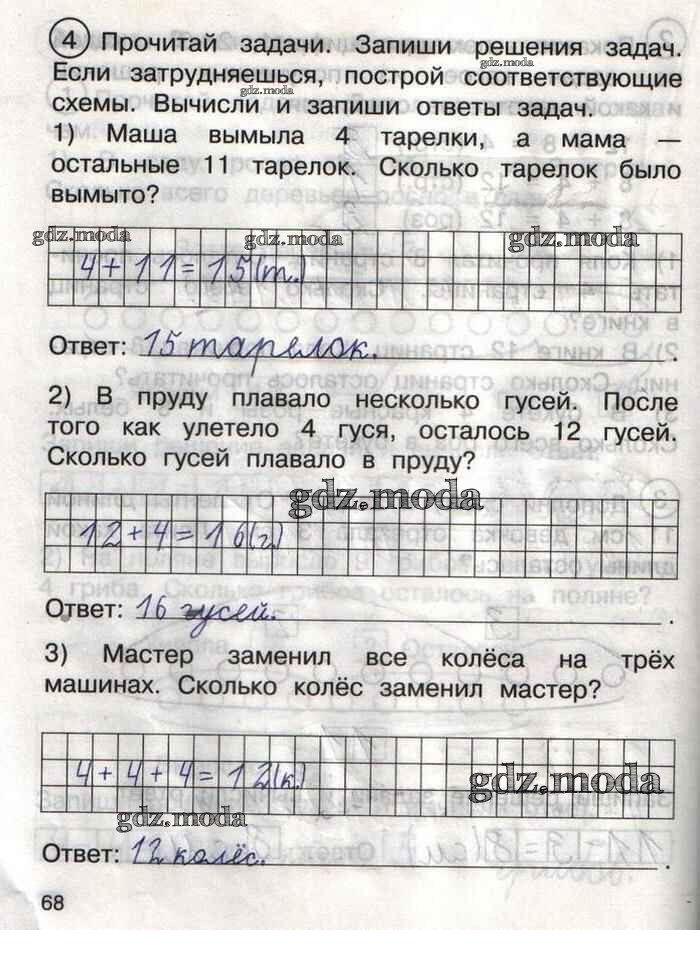 4 Прочитай задачи. Запиши решения задач.
Если затрудняешься, построй соответствующие
gdz.moda
схемы. Вычисли и запиши ответы задач.
1) Маша вымыла 4 тарелки, а мама —
остальные 11 тарелок. Сколько тарелок было
вымыто?
gdz.moda gdz.moda gdz.moda
4+11=15(т.)
Ответ: 15 тарелок. .
2) В пруду плавало несколько гусей. После
того как улетело 4 гуся, осталось 12 гусей.
Сколько гусей плавало в пруду?
gdz.moda
12+4=16(г.)
Ответ: 16 гусей. .
3) Мастер заменил все колёса на трёх
машинах. Сколько колёс заменил мастер?
4+4+4=12(к.)
gdz.moda
gdz.moda
Ответ: 12 колёс. .
68